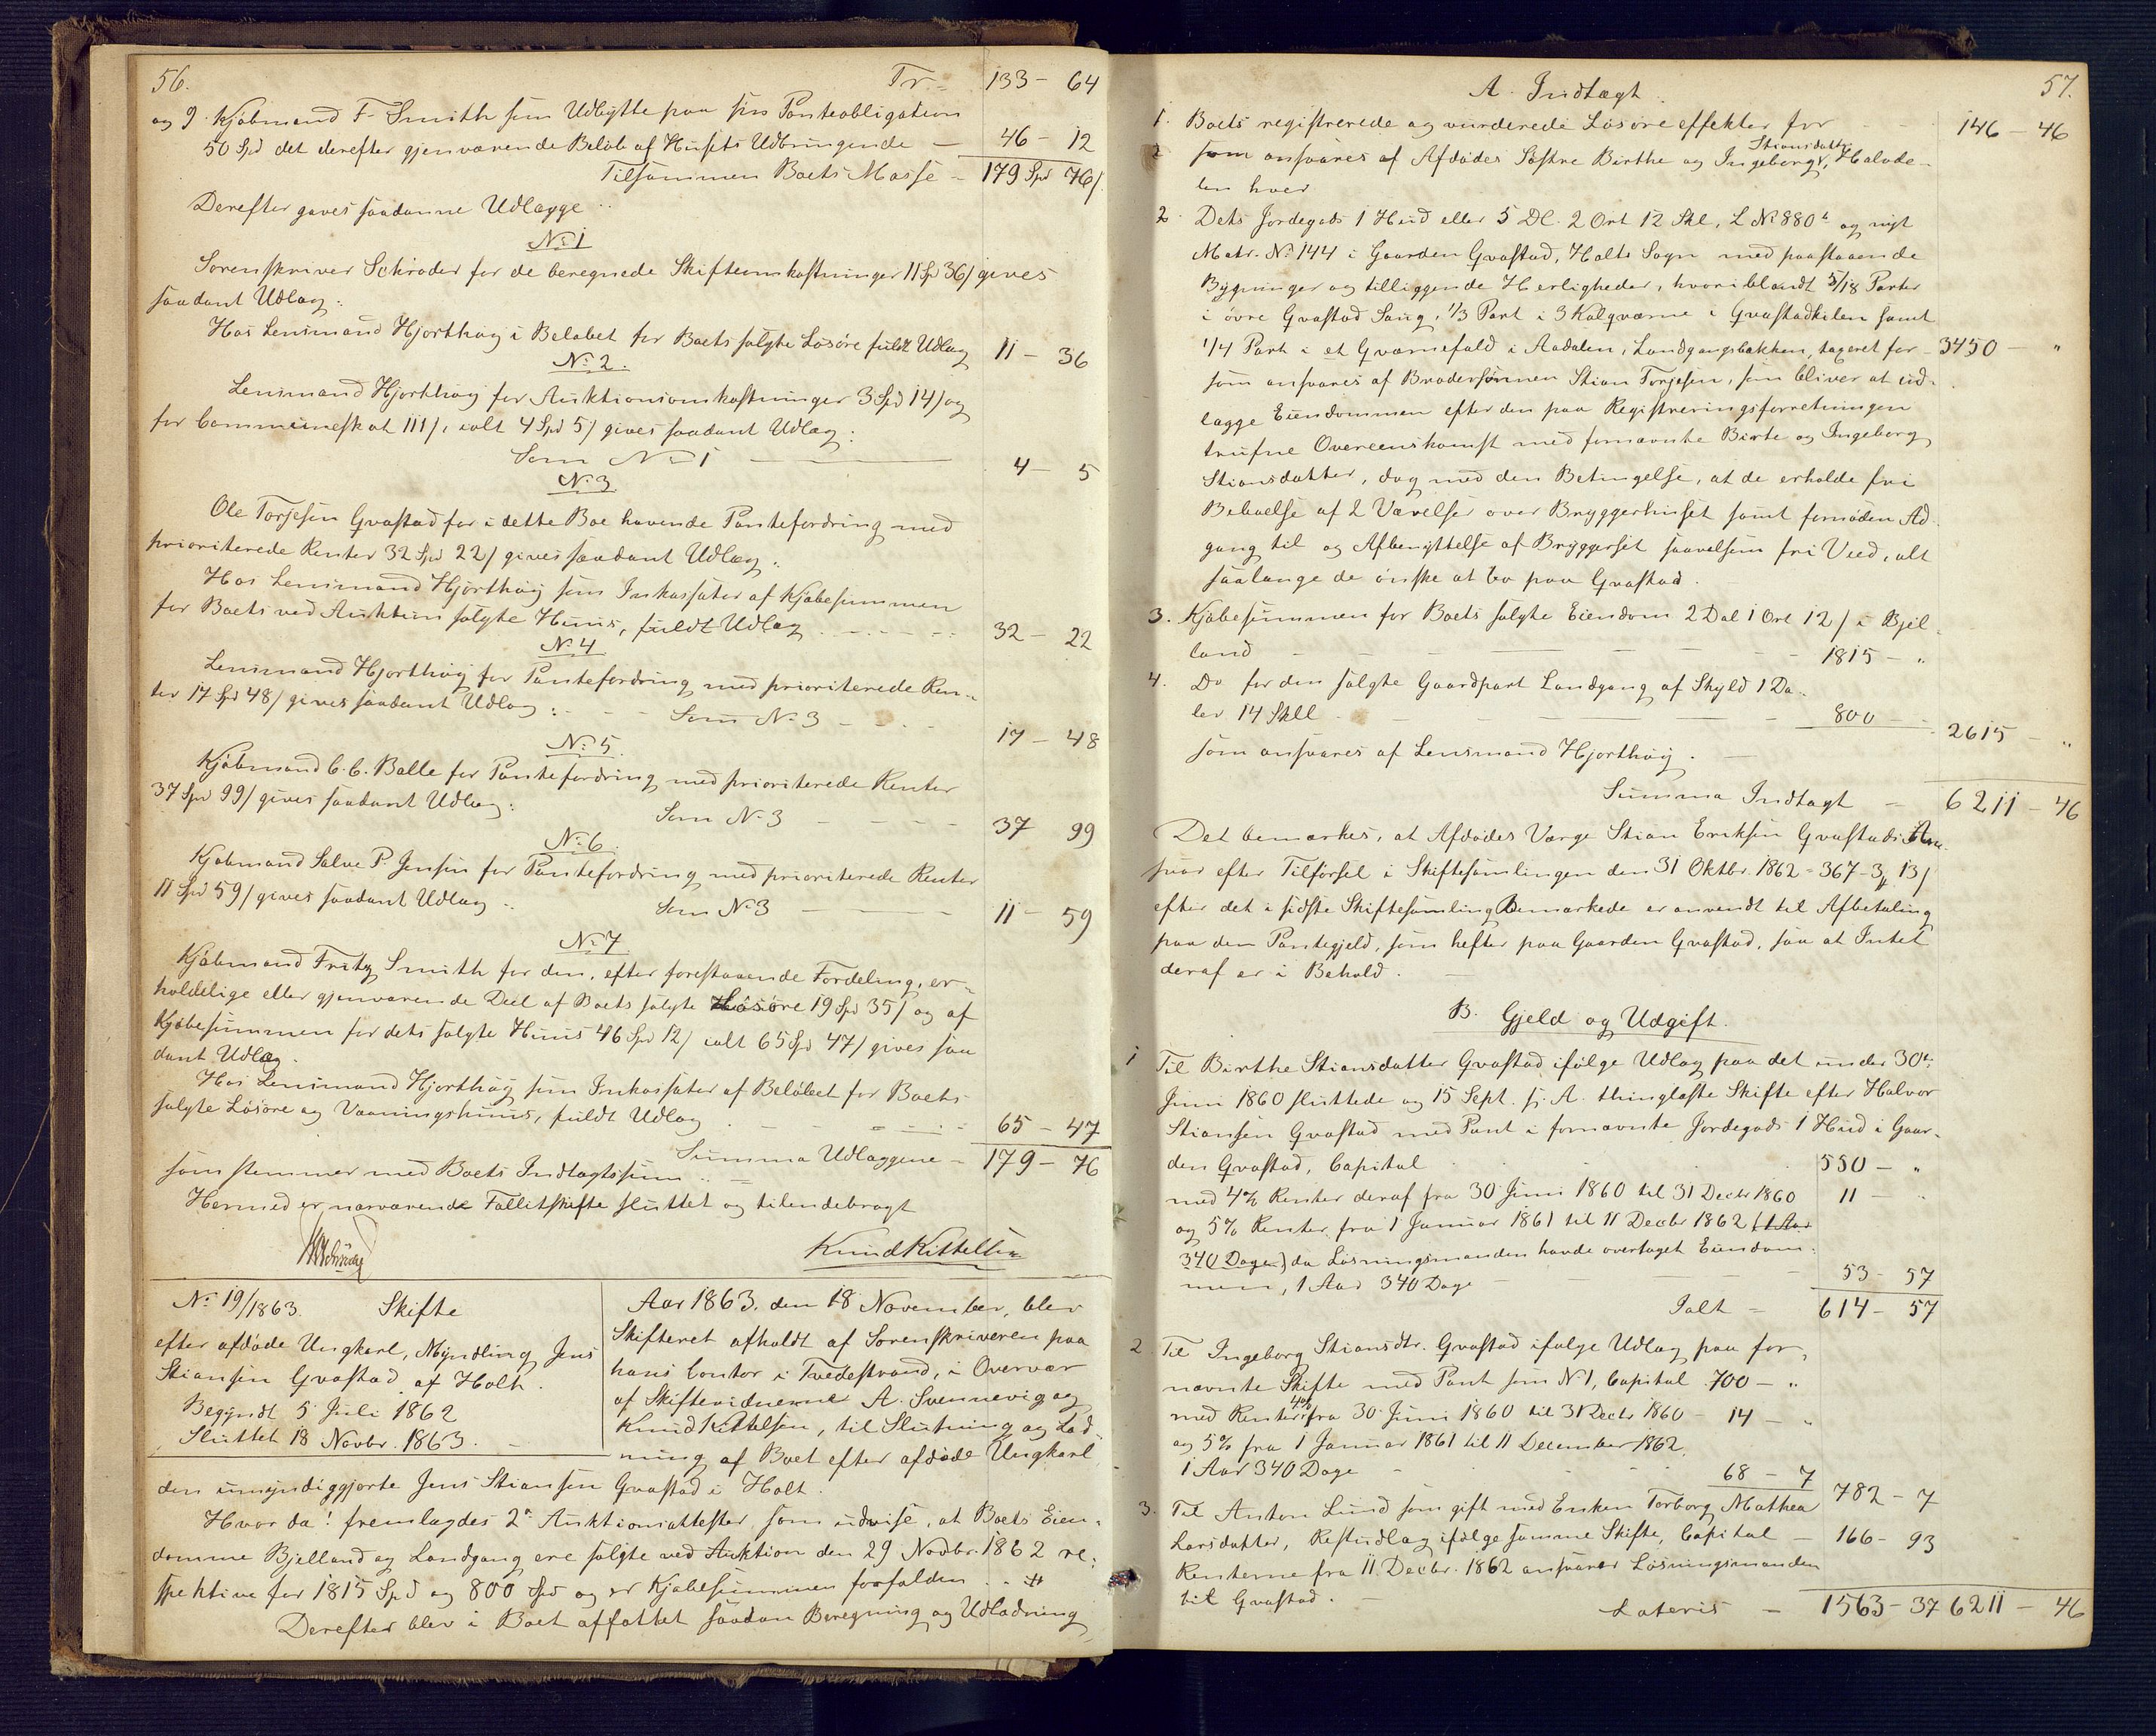 56.
Tr. = 133 - 64
og 9. Kjøbmand F. Smith som Udbytte paa sin Panteobligation
50 Spd det derefter gjenværende Beløb af Husets Udbringende — 46 - 12
Tilsammen Boets Masse - 179 Spd 76/
Derefter gaves saadanne Udlægge:
No 1
Sorenskriver Schrøder for de beregnede Skifteomkostninger 11 Sp 36/ gives
saadant Udlæg:
Hos Lensmand Hjorthøig i Beløbet for Boets solgte Løsøre fuldt Udlæg 11 - 36
No 2.
Lensmand Hjorthøig for Auktionsomkostninger 3 Spd 14/ og
for Communeskat 111/, ialt 4 Spd 5/ gives saadant Udlæg:
Som No 1 — 4 - 5
No 3
Ole Torjesen Gvastad for i dette Boe havende Pantefordring med
prioriterede Renter 32 Spd 22/ gives saadant Udlæg:
Hos Lensmand Hjorthøig som Inkassator af Kjøbesummen
for Boets ved Auktion solgte Huus, fuldt Udlæg 32 - 22
No 4
Lensmand Hjorthøig for Pantefordring med prioriterede Ren-
ter 17 Spd 48/ gives saadant Udlæg: Som No 3 - 17 - 48
No 5.
Kjøbmand C. C. Balle for Pantefordring med prioriterede Renter
37 Spd 99/ gives saadant Udlæg: Som No 3 - 37 99
No 6.
Kjøbmand Salve P. Jensen for Pantefordring med prioriterede Renter
11 Spd 59/ gives saadant Udlæg: Som No 3 — 11 - 59
No 7
Kjøbmand Fritz Smith for den, efter forestaaende Fordeling, er-
holdelige eller gjenværende Deel af Boets solgte Løsøre 19 Spd 35/ og af
Kjøbesummen for dets solgte Huus 46 Spd 12/ ialt 65 Spd 47/ gives saa
dant Udlæg.
Hos Lensmand Hjorthøig som Inkassator af Beløbet for Boets
solgte Løsøre og Vaaningshuus, fuldt Udlæg 65 - 47
Summa Udlæggene - 179 - 76
som stemmer med Boets Indtægtssum
Hermed er nærværende Fallitskifte sluttet og tilendebragt
Schrøder
Knud Kittelsen
No 19/1863. Skifte
efter afdøde Ungkarl, Myndling Jens
Stiansen Gvastad af Holt.
Begyndt 5 Juli 1862
Sluttet 18 Novbr. 1863.
Aar 1863, den 18 November, blev
Skifteret afholdt af Sorenskriveren paa
hans Contor i Tvedestrand, i Overvær
af Skiftevidnerne A. Svennevig og
Knud Kittelsen, til Slutning og Lad-
ning af Boet efter afdøde Ungkarl
den umyndiggjorte Jens Stiansen Gvastad i Holt.
Hvor da! fremlagdes 2de Auktionsattester som udvise, at Boets Eien-
domme Bjelland og Landgang ere solgte ved Auktion den 29 Novbr. 1862 re-
spektive for 1815 Spd og 800 Spd og er Kjøbesummen forfalden.
Derefter blev i Boet affattet saadan Beregning og Udladning
57.
A. Indtægt.
1. Boets registrerede og vurderede Løsøreeffekter for 146 - 46
Stiansdatter
som ansvares af Afdødes Søstre Birthe og Ingeborg, Halvde-
len hver
2. Dets Jordegods 1 Hud eller 5 Dl. 2 Ort 12 Skl, L No 880 a og nyt
Matr. No 144 i Gaarden Gvastad, Holts Sogn med paastaaende
Bygninger og tilliggende Herligheder, hvoriblandt 5/18 Parter
i øvre Gvastad Saug, 1/3 Part i 3 Kalqværne i Gvastadkilen samt
1/4 Part i et Qværnefald i Aadalen, Landgangsbakken, taxeret for - 3450 - "
som ansvares af Brodersønnen Stian Torjesen, som bliver at ud-
lægge Eiendommen efter den paa Registreringsforretningen
trufne Overeenskomst med fornævnte Birte og Ingeborg
Stiansdatter, dog med den Betingelse, at de erholde fri
Beboelse af 2 Værelser over Bryggerhuset samt fornøden Ad-
gang til og Afbenyttelse af Bryggerset saavelsom fri Ved, alt
saalænge de ønske at bo paa Gvastad.
3. Kjøbesummen for Boets solgte Eiendom 2 Dal 1 Ort 12/ i Bjel-
land 1815 - "
4. Do for den solgte Gaardpart Landgang af Skyld 1 Da-
ler 14 Skll 800 - 2615 - "
som ansvares af Lensmand Hjorthøig.
Summa Indtægt - 6211 - 46
Det bemærkes, at Afdødes Værge Stian Eriksen Gvastads An-
svar efter Tilførsel i Skiftesamlingen den 31 Oktbr. 1862 = 367 - 3 13/
efter det i sidste Skiftesamling Bemærkede er anvendt til Afbetaling
paa den Pantegjeld, som hefter paa Gaarden Gvastad, saa at Intet
deraf er i Behold.
B. Gjeld og Udgift.
1 Til Birthe Stiansdatter Gvastad ifølge Udlæg paa det under 30te
Juni 1860 sluttede og 15 Sept. s. A. thinglæste Skifte efter Halvor
Stiansen Gvastad med Pant i fornævnte Jordegods 1 Hud i Gaar-
den Gvastad, Capital 550 - "
med 4% Renter deraf fra 30 Juni 1860 til 31 Decbr 1860 11 - "
og 5% Renter fra 1 Januar 1861 til 11 Decbr 1862 (1 Aar
340 Dage) da Løsningsmanden havde overtaget Eiendom-
men, 1 Aar 340 Dage 53 - 57
Ialt - 614 - 57
2. Til Ingeborg Stiansdtr. Gvastad ifølge Udlæg paa for-
nævnte Skifte med Pant som No 1, Capital 700 - "
med Renter 4% fra 30 Juni 1860 til 31 Decbr 1860 - 14 - "
og 5% fra 1 Januar 1861 til 11 December 1862
1 Aar 340 Dage 68 - 7 782 - 7
3. Til Anton Lund som gift med Enken Torborg Mathea
Larsdatter, Restudlæg ifølge samme Skifte, Capital — 166 - 93
Renterne fra 11 Decbr. 1862 ansvarer Løsningsmanden
til Gvastad.
Lateris - 1563 - 37 6211 - 46